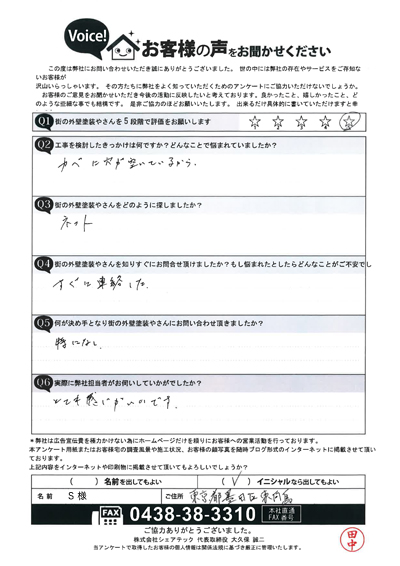 Voice!
お客様の声をお聞かせください
この度は弊社にお問い合わせいただき誠にありがとうございました。 世の中には弊社の存在やサービスをご存知ないお客様が
沢山いらっしゃいます。 その方たちに弊社をよく知っていただくためのアンケートにご協力いただけないでしょうか。
お客様のご意見をお聞かせいただき今後の活動に反映したいと考えております。良かったこと、嬉しかったこと、ど
のような些細な事でも結構です。 是非ご協力のほどお願いいたします。 出来るだけ具体的に書いていただけますと幸
Q1 街の外壁塗装やさんを5段階で評価をお願いします ☆ ☆ ☆ ☆ ☆
Q2 工事を検討したきっかけは何ですか?どんなことで悩まれていましたか?
カベに穴が空いているから。
Q3 街の外壁塗装やさんをどのように探しましたか?
ネット
Q4 街の外壁塗装やさんを知りすぐにお問合せ頂けましたか?もし悩まれたとしたらどんなことがご不安でし
すぐに連絡した。
Q5 何が決め手となり街の外壁塗装やさんにお問い合わせ頂きましたか?
特になし。
Q6 実際に弊社担当者がお伺いしていかがでしたか?
とても感じがいいです。
*弊社は広告宣伝費を極力かけない為にホームページだけを頼りにお客様への営業活動を行っております。
本アンケート用紙またはお客様宅の調査風景や施工状況、お客様の顔写真を随時ブログ形式のインターネットに掲載させて頂い
ております。
上記内容をインターネットや印刷物に掲載させて頂いてもよろしいでしょうか?
( )名前を出してもよい (✓)イニシャルなら出してもよい
名前 S様 ご住所 東京都墨田区東向島
FAX 0438-38-3310 本社直通 FAX番号
ご協力ありがとうございました。
株式会社シェアテック 代表取締役 大久保 誠二
当アンケートで取得したお客様の個人情報は関係法規に基づき厳正に管理いたします。
田中